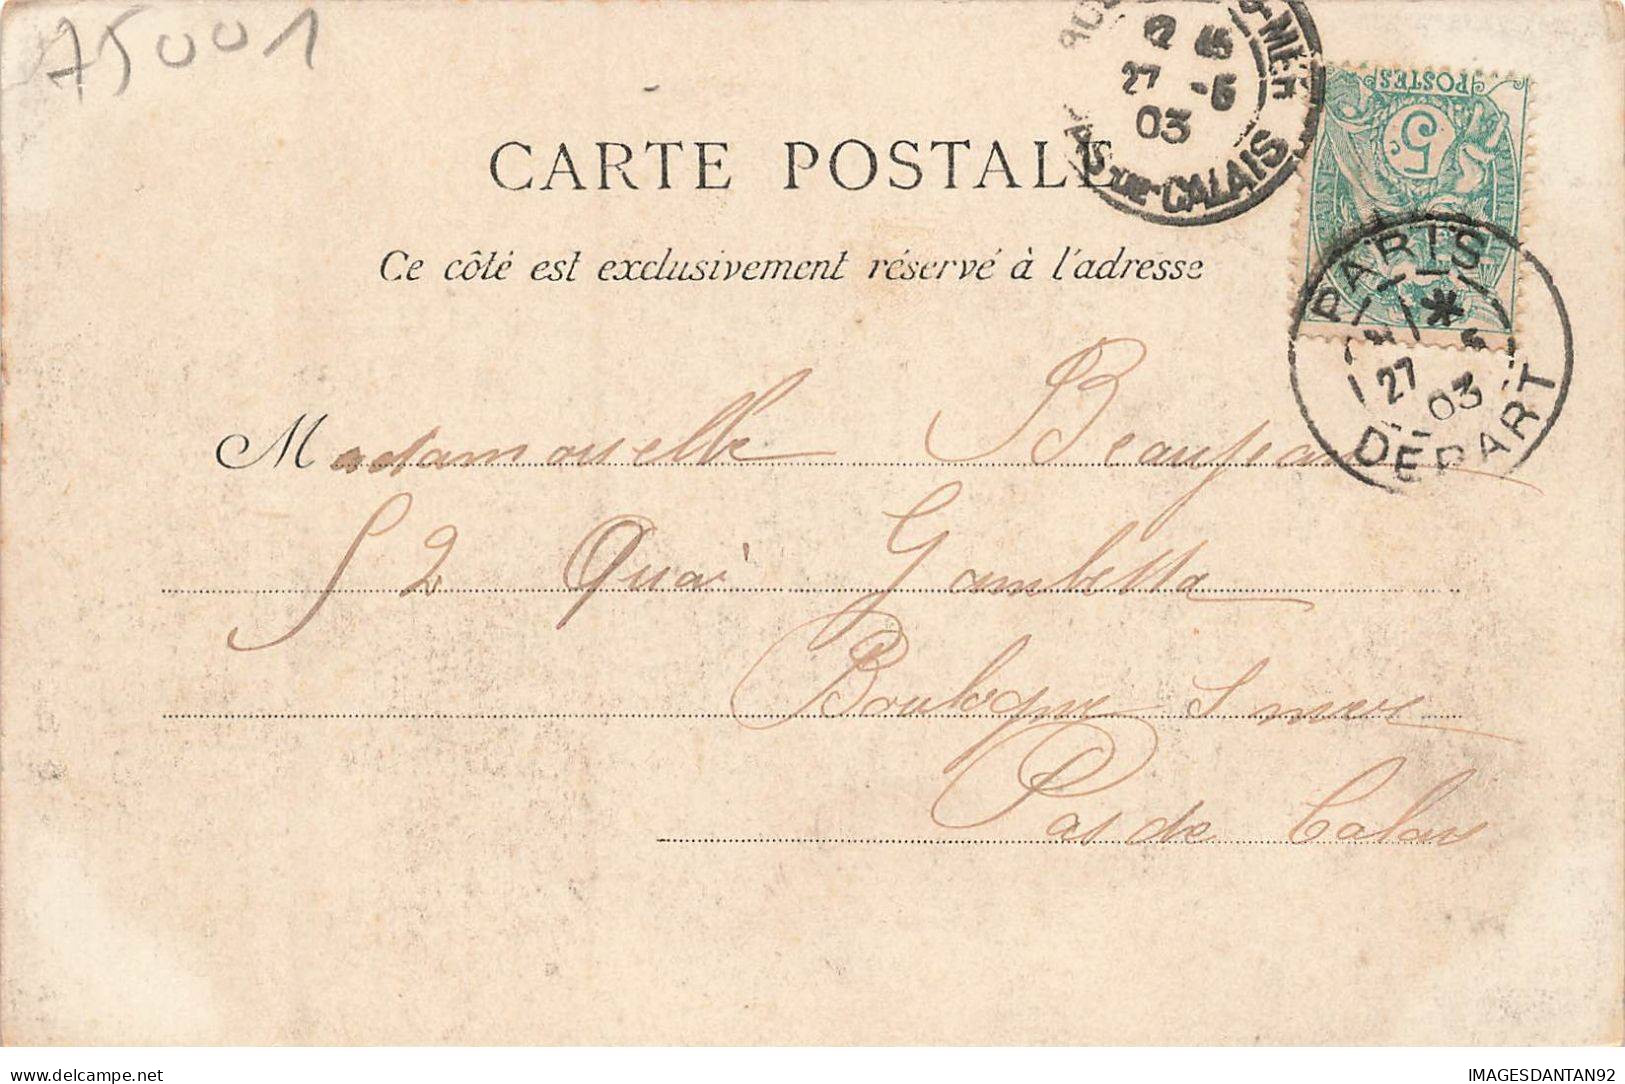 75001
CARTE POSTALE
Ce côté est exclusivement réservé à l'adresse
POSTES
5c
MER
27 -5
03
CALAIS
PARIS
*
27
03
DEPART
Mademoiselle Beaujean
52 Quai Gambetta
Boulogne s mer
Pas de Calais
delcampe.net
IMAGESDANTAN92